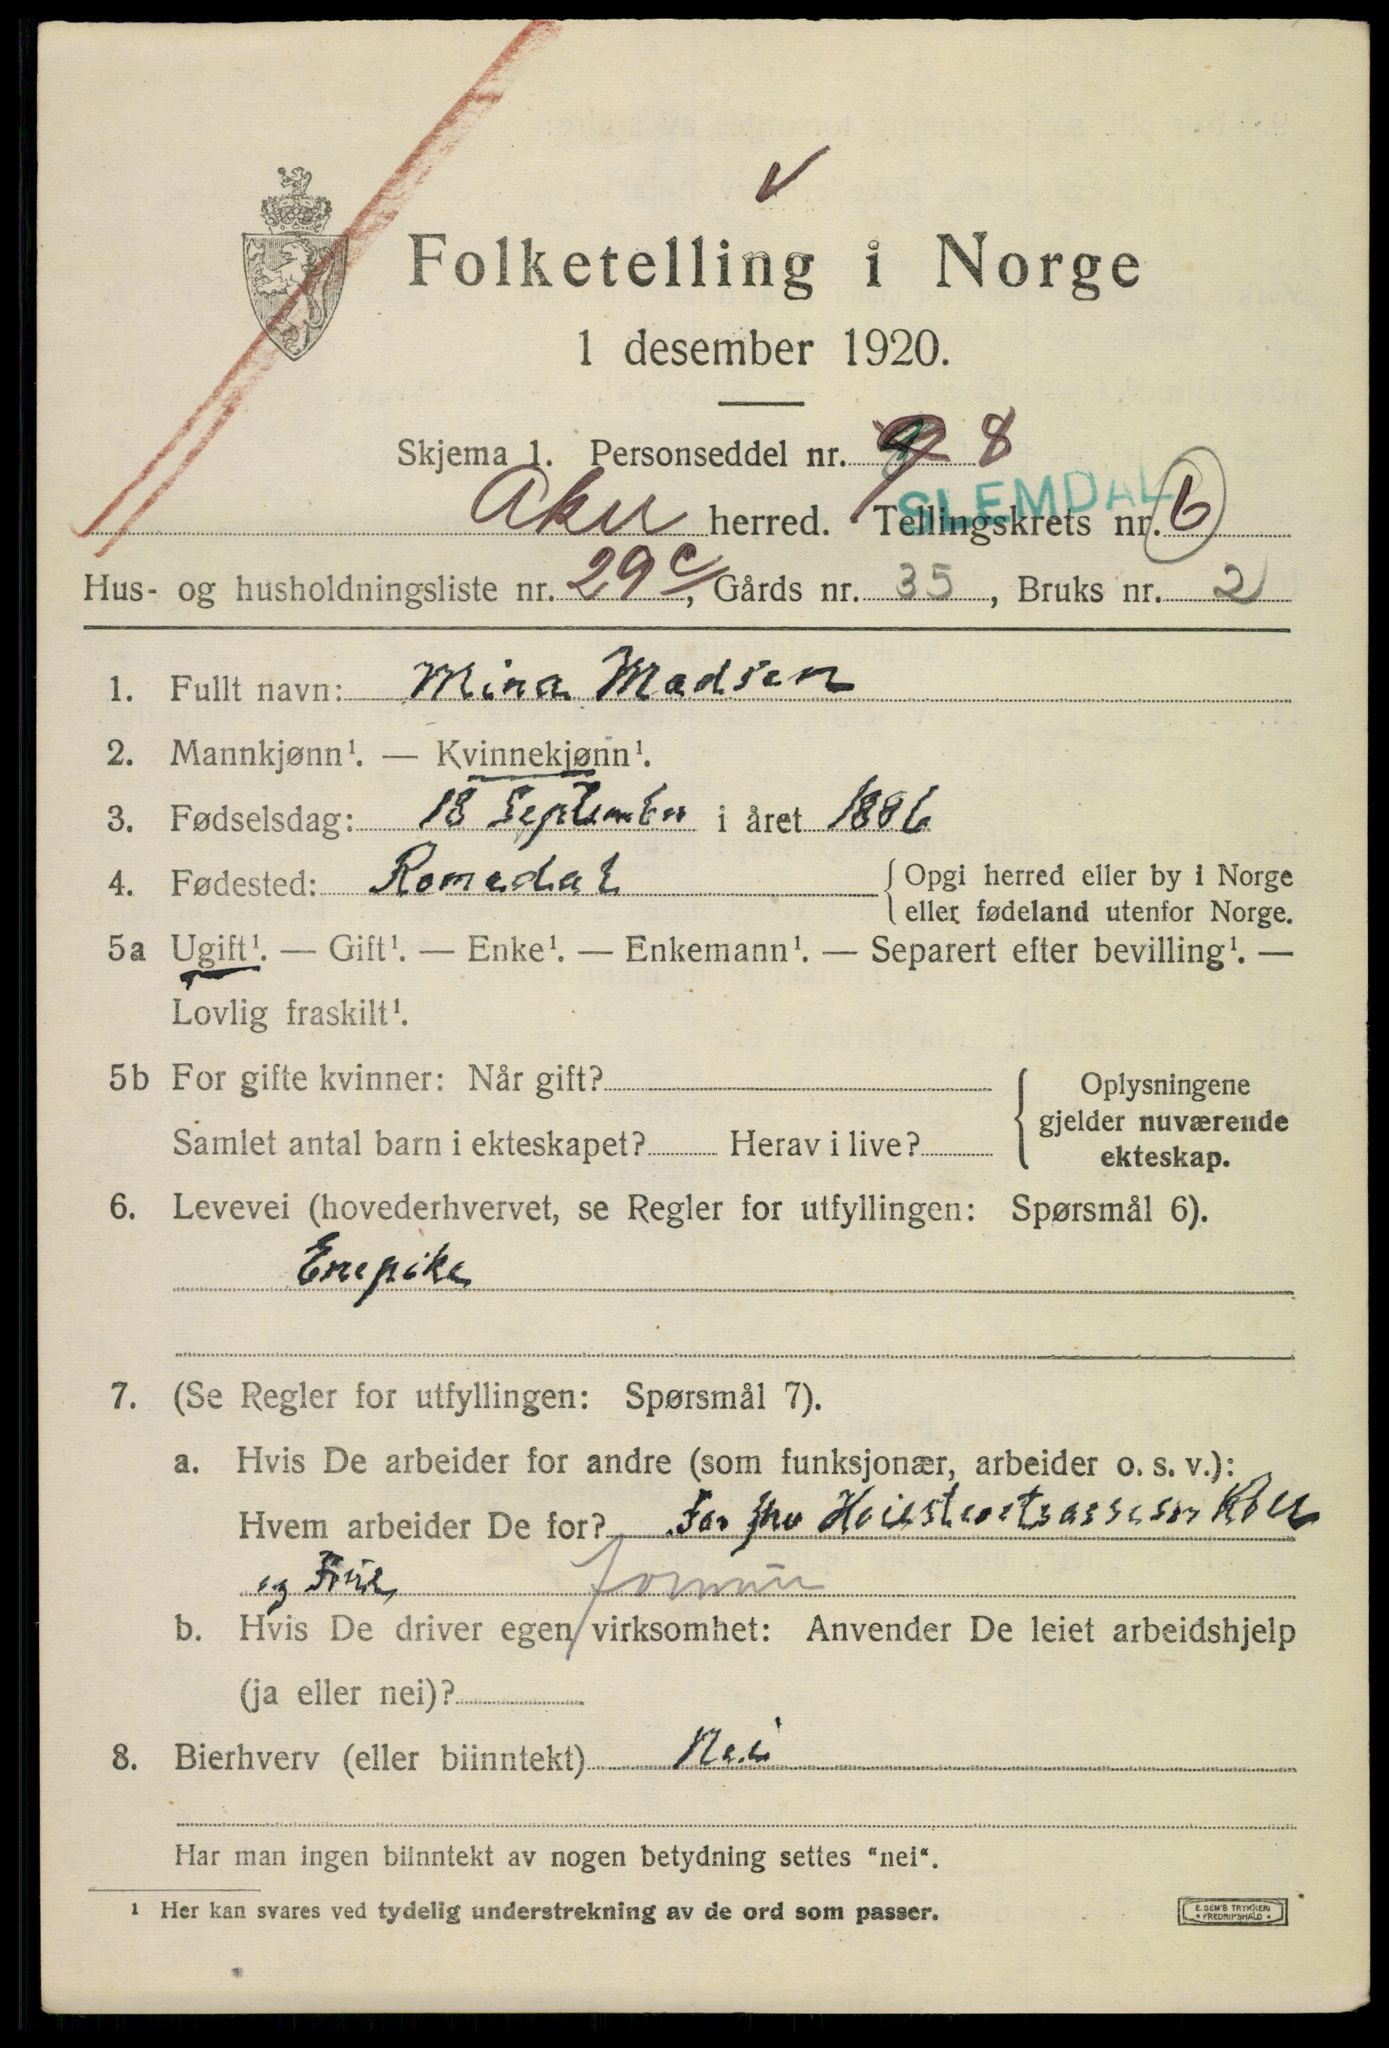 Folketelling i Norge
1 desember 1920.
Skjema 1. Personseddel nr. 8
Aker herred. Tellingskrets nr. 6
SLEMDAL
Hus- og husholdningsliste nr. 29c, Gårds nr. 35, Bruks nr. 2
1. Fullt navn: Mina Madsen
2. Mannkjønn¹. — Kvinnekjønn¹.
3. Fødselsdag: 18 September i året 1886
4. Fødested: Romedal { Opgi herred eller by i Norge
eller fødeland utenfor Norge.
5a Ugift¹. — Gift¹. — Enke¹. — Enkemann¹. — Separert efter bevilling¹. —
Lovlig fraskilt¹.
5b For gifte kvinner: Når gift?
Samlet antal barn i ekteskapet? Herav i live?
{ Oplysningene
gjelder nuværende
ekteskap.
6. Levevei (hovederhvervet, se Regler for utfyllingen: Spørsmål 6).
Enepike
7. (Se Regler for utfyllingen: Spørsmål 7).
a. Hvis De arbeider for andre (som funksjonær, arbeider o. s. v.):
Hvem arbeider De for? For Høiesteretsassesor
og Frue
b. Hvis De driver egen virksomhet: Anvender De leiet arbeidshjelp
(ja eller nei)?
8. Bierhverv (eller biinntekt) Nei
Har man ingen biinntekt av nogen betydning settes "nei".
¹ Her kan svares ved tydelig understrekning av de ord som passer.
E. SEM'S TRYKKERI
• FREDRIKSHALD •